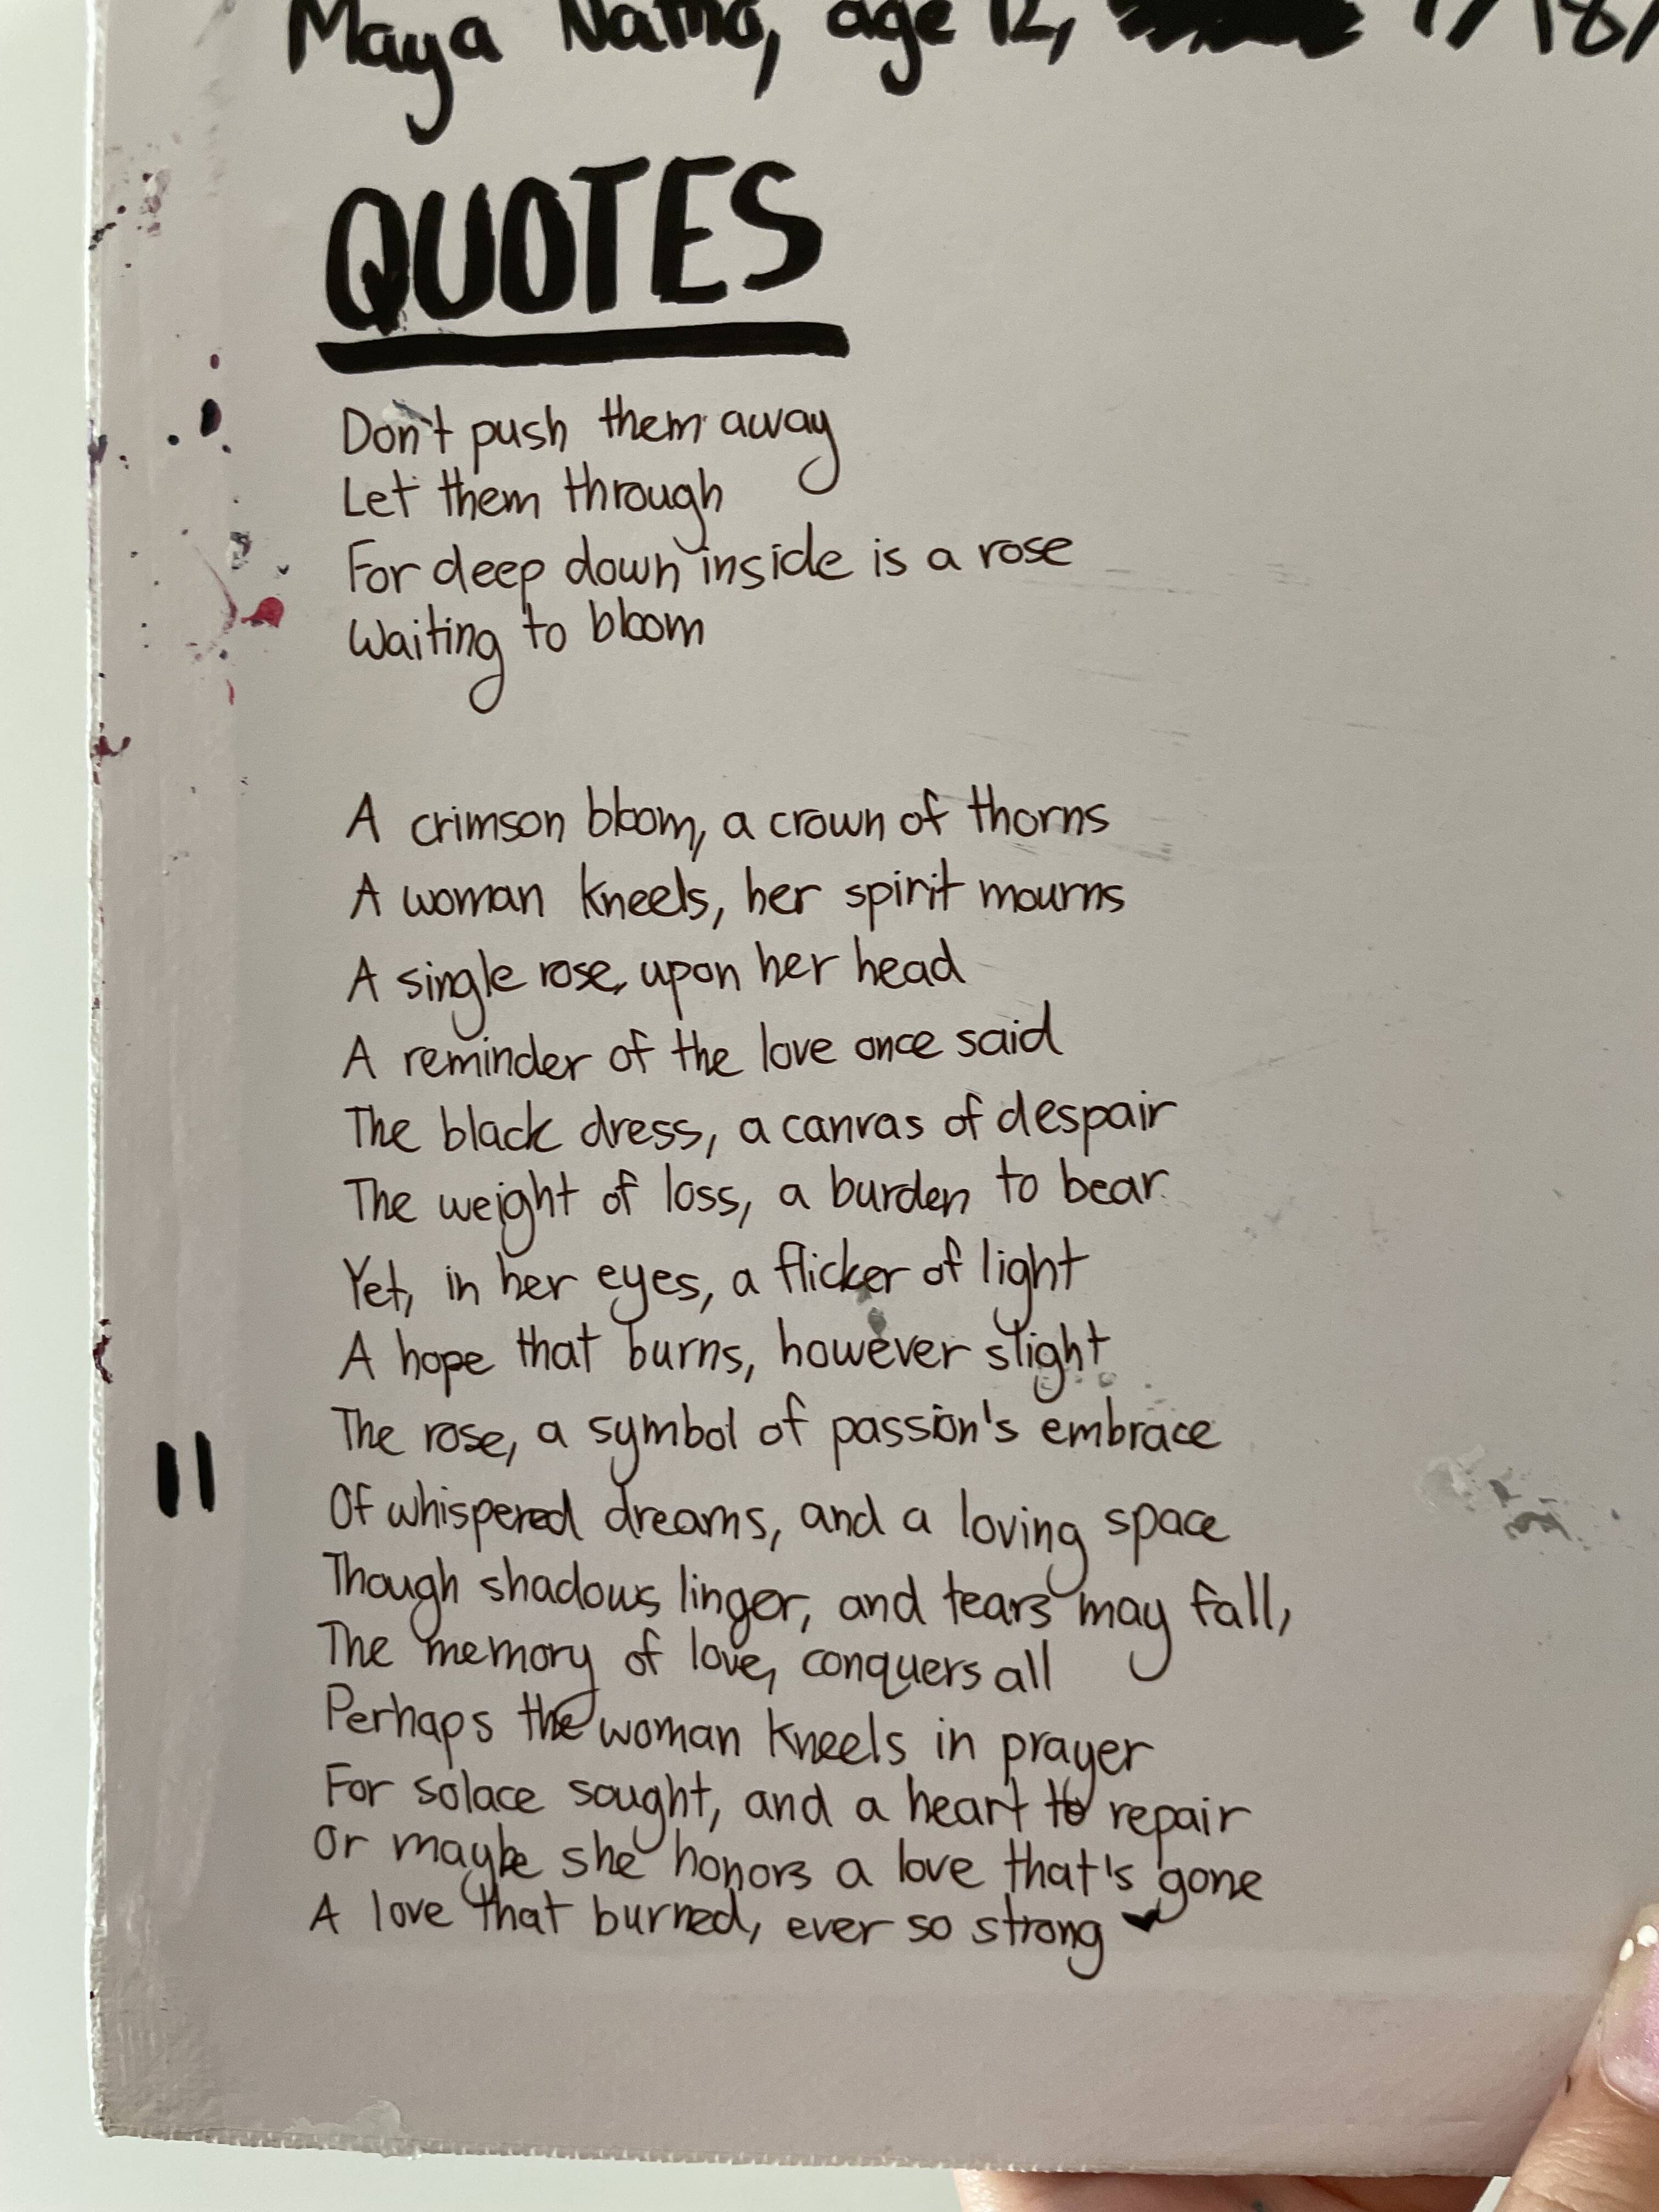 Maya age 12,
QUOTES
Don't push them away
Let them through
For deep down inside is a rose
Waiting to bloom
A crimson bloom, a crown of thorns
A woman kneels, her spirit mourns
A single rose, upon her head
A reminder of the love once said
The black dress, a canvas of despair
The weight of loss, a burden to bear
Yet, in her eyes, a flicker of light
A hope that burns, however slight
The rose, a symbol of passion's embrace
Of whispered dreams, and a loving space
Though shadows linger, and tears may fall,
The memory of love, conquers all
Perhaps the woman kneels in prayer
For solace sought, and a heart to repair
Or maybe she honors a love that's gone
A love that burned, ever so strong